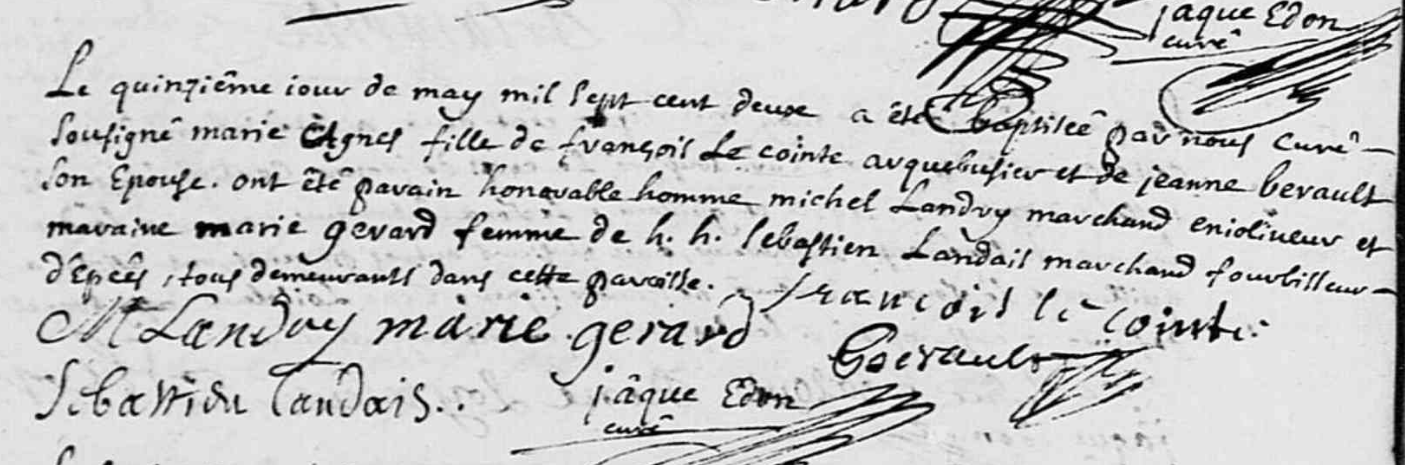 jaque Edon
curé
Le quinziême iour de may mil sept cent deux a été baptisée par nous curé
sousigné marie Agnes fille de françois Le cointe arquebusier et de jeanne berault
son Epouse. ont êté parain honorable homme michel Landry marchand enioliveur et
maraine marie gerard femme de h. h. sebastien Landais marchand fourbisseur
d'Epeês, tous demeurants dans cette paroisse.
françois le cointe
M Landry marie gerard
Berault
Sebastien Landais..
jâque Edon
curê